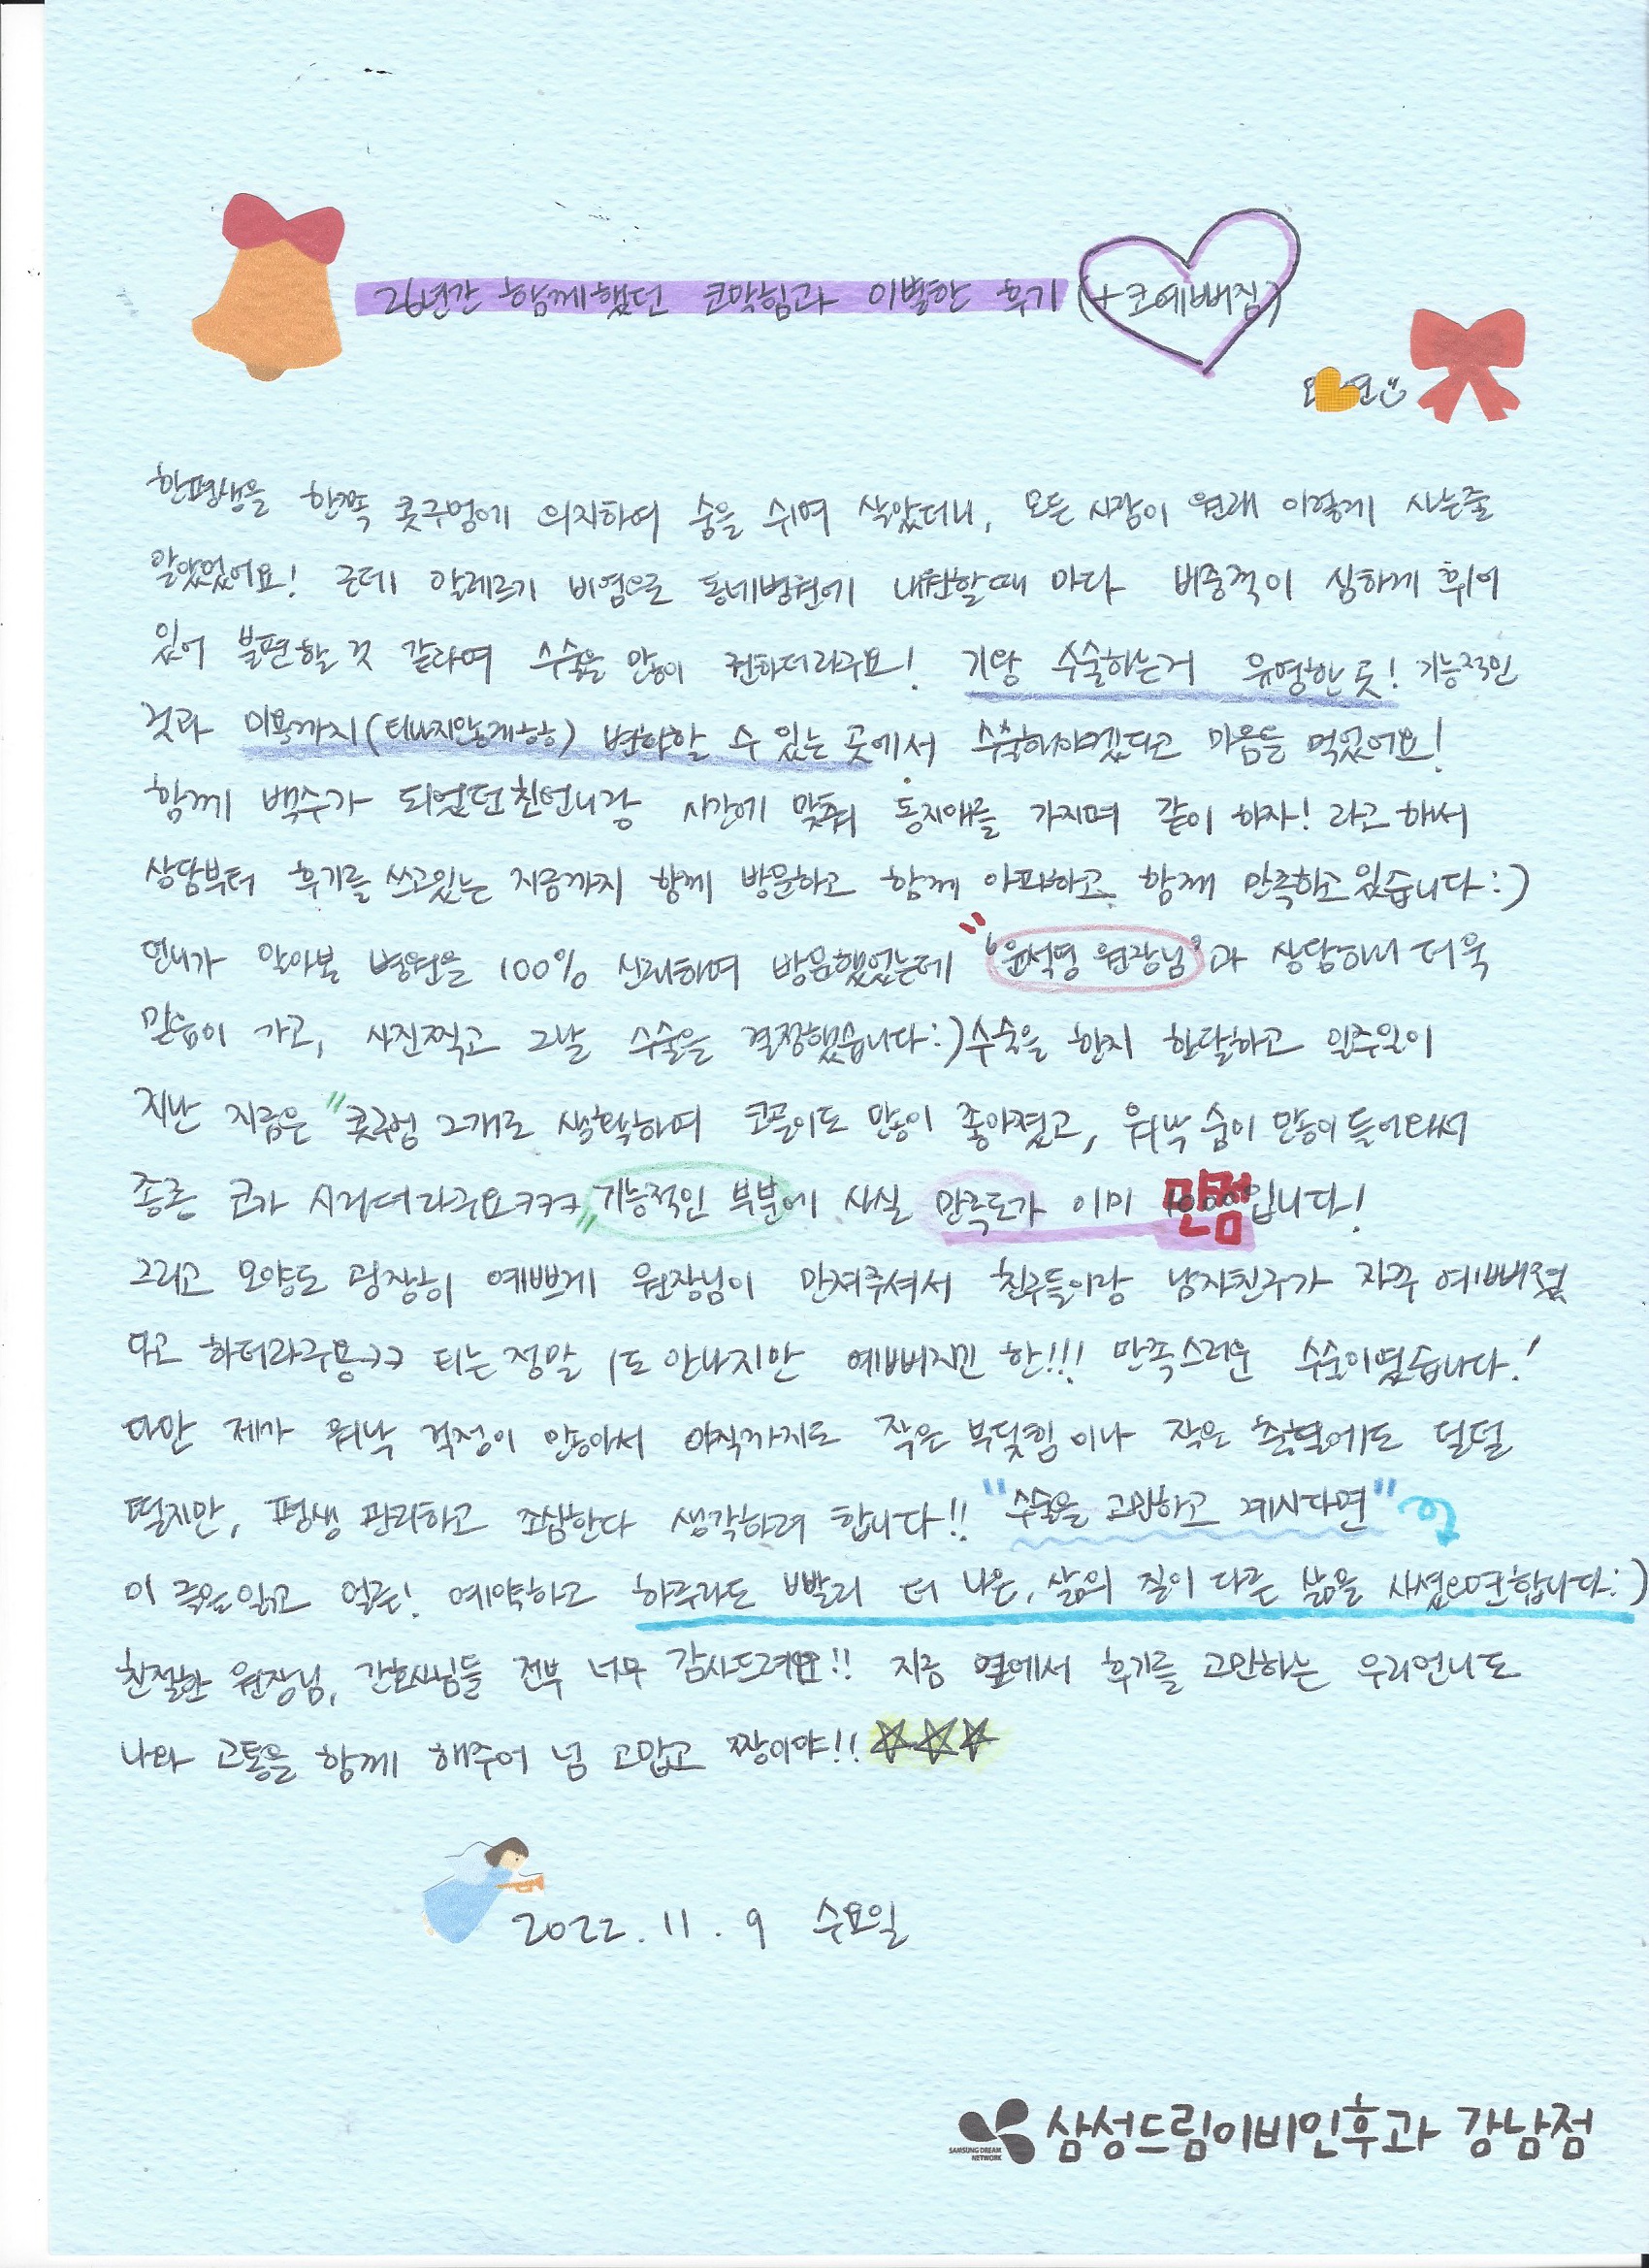 26년간 함께했던 코막힘과 이별한 후기 (+코예뻐짐)
한평생을 한쪽 콧구멍에 의지하여 숨을 쉬며 살았더니, 모든 사람이 원래 이렇게 사는줄
알았었어요! 근데 알레르기 비염으로 동네병원에 내원할때 마다 비중격이 심하게 휘어
있어 불편할 것 같다며 수술을 많이 권하더라구요! 기왕 수술하는거 유명한 곳! 기능적인
것과 미용까지(티나지않게ㅎㅎ) 변화할 수 있는 곳에서 수술해야겠다고 마음을 먹었어요!
함께 백수가 되었던 친언니랑 시간에 맞춰 동지애를 가지며 같이 하자! 라고 해서
상담부터 후기를 쓰고있는 지금까지 함께 방문하고 함께 아파하고 함께 만족하고 있습니다:)
언니가 알아본 병원을 100% 신뢰하며 방문했었는데 "윤석영 원장님"과 상담하니 더욱
믿음이 가고, 사진찍고 그날 수술을 결정했습니다:) 수술을 한지 한달하고 일주일이
지난 지금은 "콧구멍 2개로 생활하며 코골이도 많이 좋아졌고, 워낙 숨이 많이 들어와서
종종 코가 시리더라구요ㅋㅋㅋ" 기능적인 부분에 사실 만족도가 이미 만점입니다!
그리고 모양도 굉장히 예쁘게 원장님이 만져주셔서 친구들이랑 남자친구가 자꾸 예뻐졌
다고 하더라구용ㅋㅋ 티는 정말 1도 안나지만 예뻐지긴 한!!! 만족스러운 수술이였습니다!
다만 제가 워낙 걱정이 많아서 아직까지도 작은 부딪힘이나 작은 출혈에도 덜덜
떨지만, 평생 관리하고 조심한다 생각하려 합니다!! "수술을 고민하고 계시다면"
이 글을읽고 얼른! 예약하고 하루라도 빨리 더 나은, 삶의 질이 다른 삶을 사셨으면합니다:)
친절한 원장님, 간호사님들 전부 너무 감사드려요!! 지금 옆에서 후기를 고민하는 우리언니도
나와 고통을 함께 해주어 넘 고맙고 짱이야!! ☆☆☆
2022. 11. 9 수요일
SAMSUNG DREAM NETWORK 삼성드림이비인후과 강남점